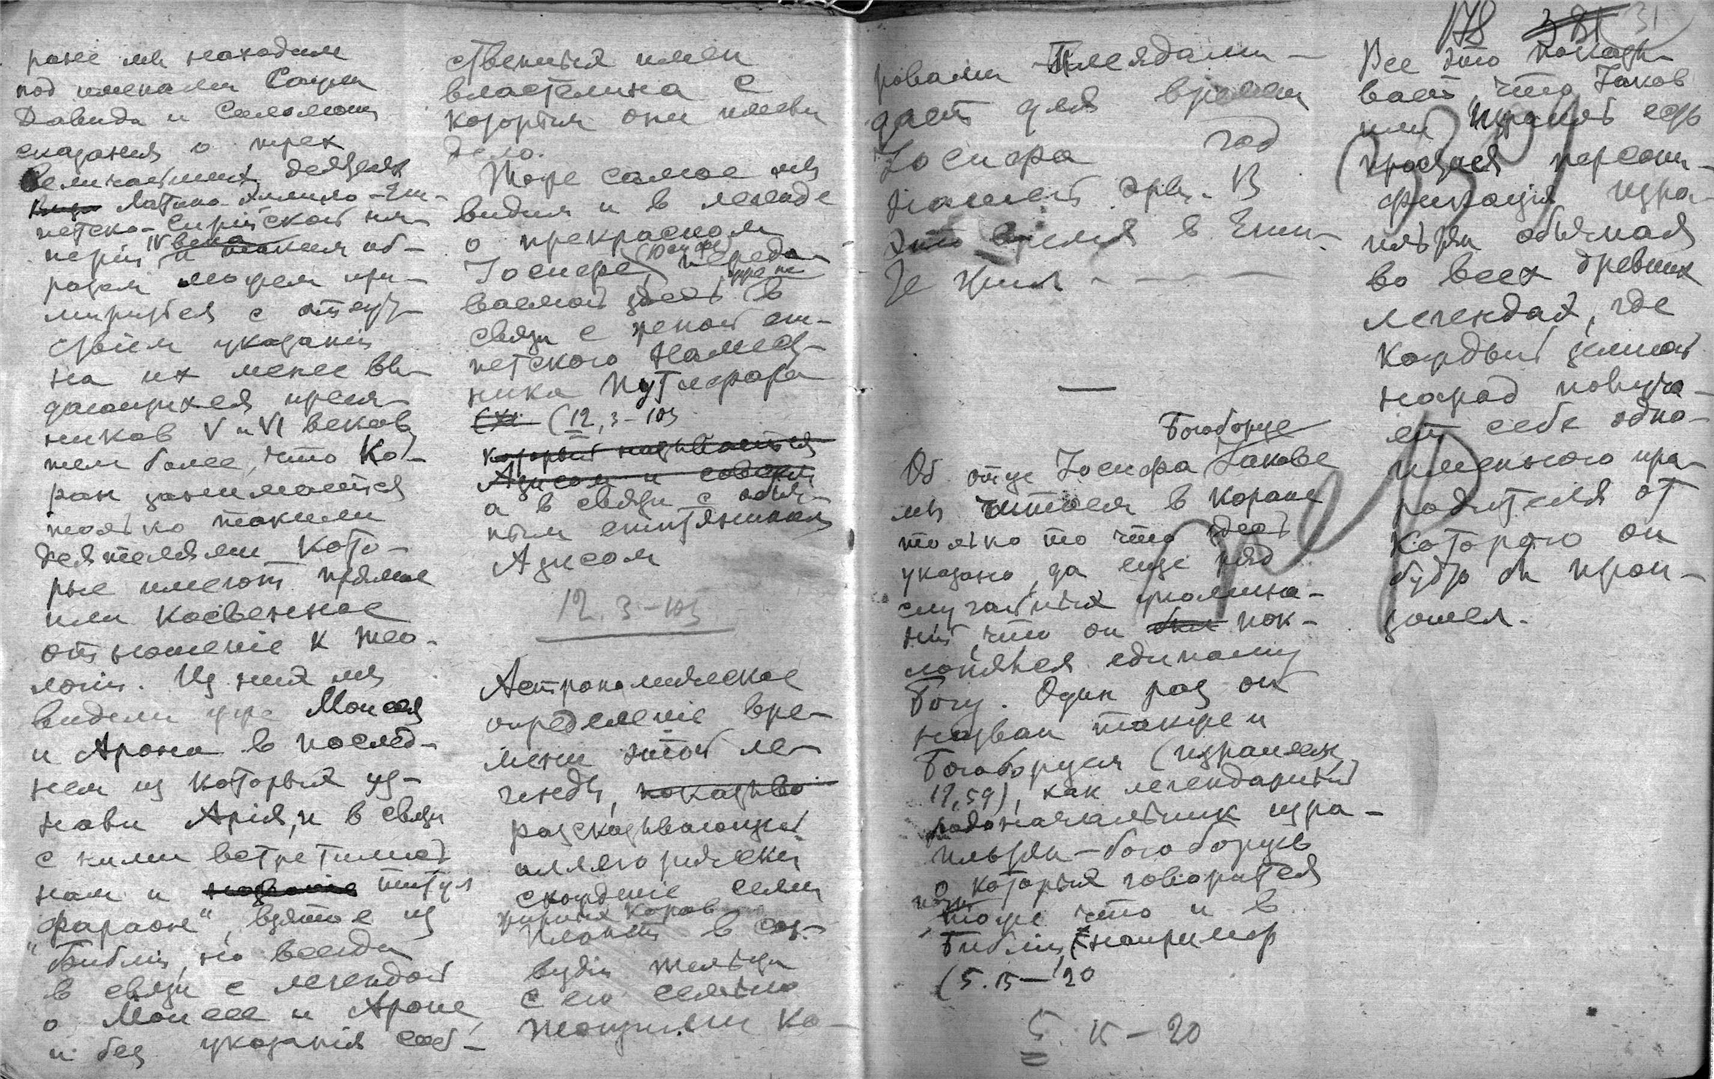 ране мы находим
под именами Саула
Давида и Соломона
сказания о трех
величайших деятелях
Латино-Эллино-Еги-
петско-Сирийской им-
перии IV века и таким об-
разом можем при-
мириться с отсут-
ствием указаний
на их менее вы-
дающихся преем-
ников V и VI веков
тем более, что Ко-
ран занимается
только такими
деятелями кото-
рые имеют прямое
или косвенное
отношение к тео-
логии. Из них мы
видели уже Моисея
и Арона в послед-
нем из которых уз-
нали Ария, и в связи
с ними встретился
нам и название титул
"фараон", взятое из
Библии, но всегда
в связи с легендой
о Моисее и Ароне,
и без указания соб-
ственных имен
властелина с
которым они имели
дело.
Тоже самое мы
видим и в легенде
о прекрасном
Иосифе, переда-
ваемой здесь в
связи с женой еги-
петского намест-
ника Путифара
(12, 3-103
который называется
Азисом и совсем
а в связи с обыч-
ным египтянином
Азисом
12. 3-103
Астрономическое
определение вре-
мени этой ле-
генды, показыва
рассказывающей
аллегорически
схождение семи
жирных коров
в соз-
вездии Тельца
с его семью
тощими ко-
ровами - Плеядами -
дает для времени
Иосифа год
нашей эры. В
это время в Еги-
Богоборце
Об отце Иосифа Иакове
мы читаем в Коране
только то что здесь
указано, да еще ряд
случайных упомина-
ний, что он был пок-
лонялся единому
Богу. Один раз он
назван также и
Богоборцем (израилем
19,59), как легендарный
родоначальник изра-
ильтян-богоборцев
о которых говорится
тоже что и в
Библии, (например
(5. 15-20
5. 15-20
178 381 31
Все это показы-
вает, что Иаков
или Израиль есть
простая персони-
фикация изра-
ильтян обычная
во всех древних
легендах, где
каждый целый
народ получа-
ет себе одно-
именного пра-
родителя от
которого он
будто бы прои-
зошел.